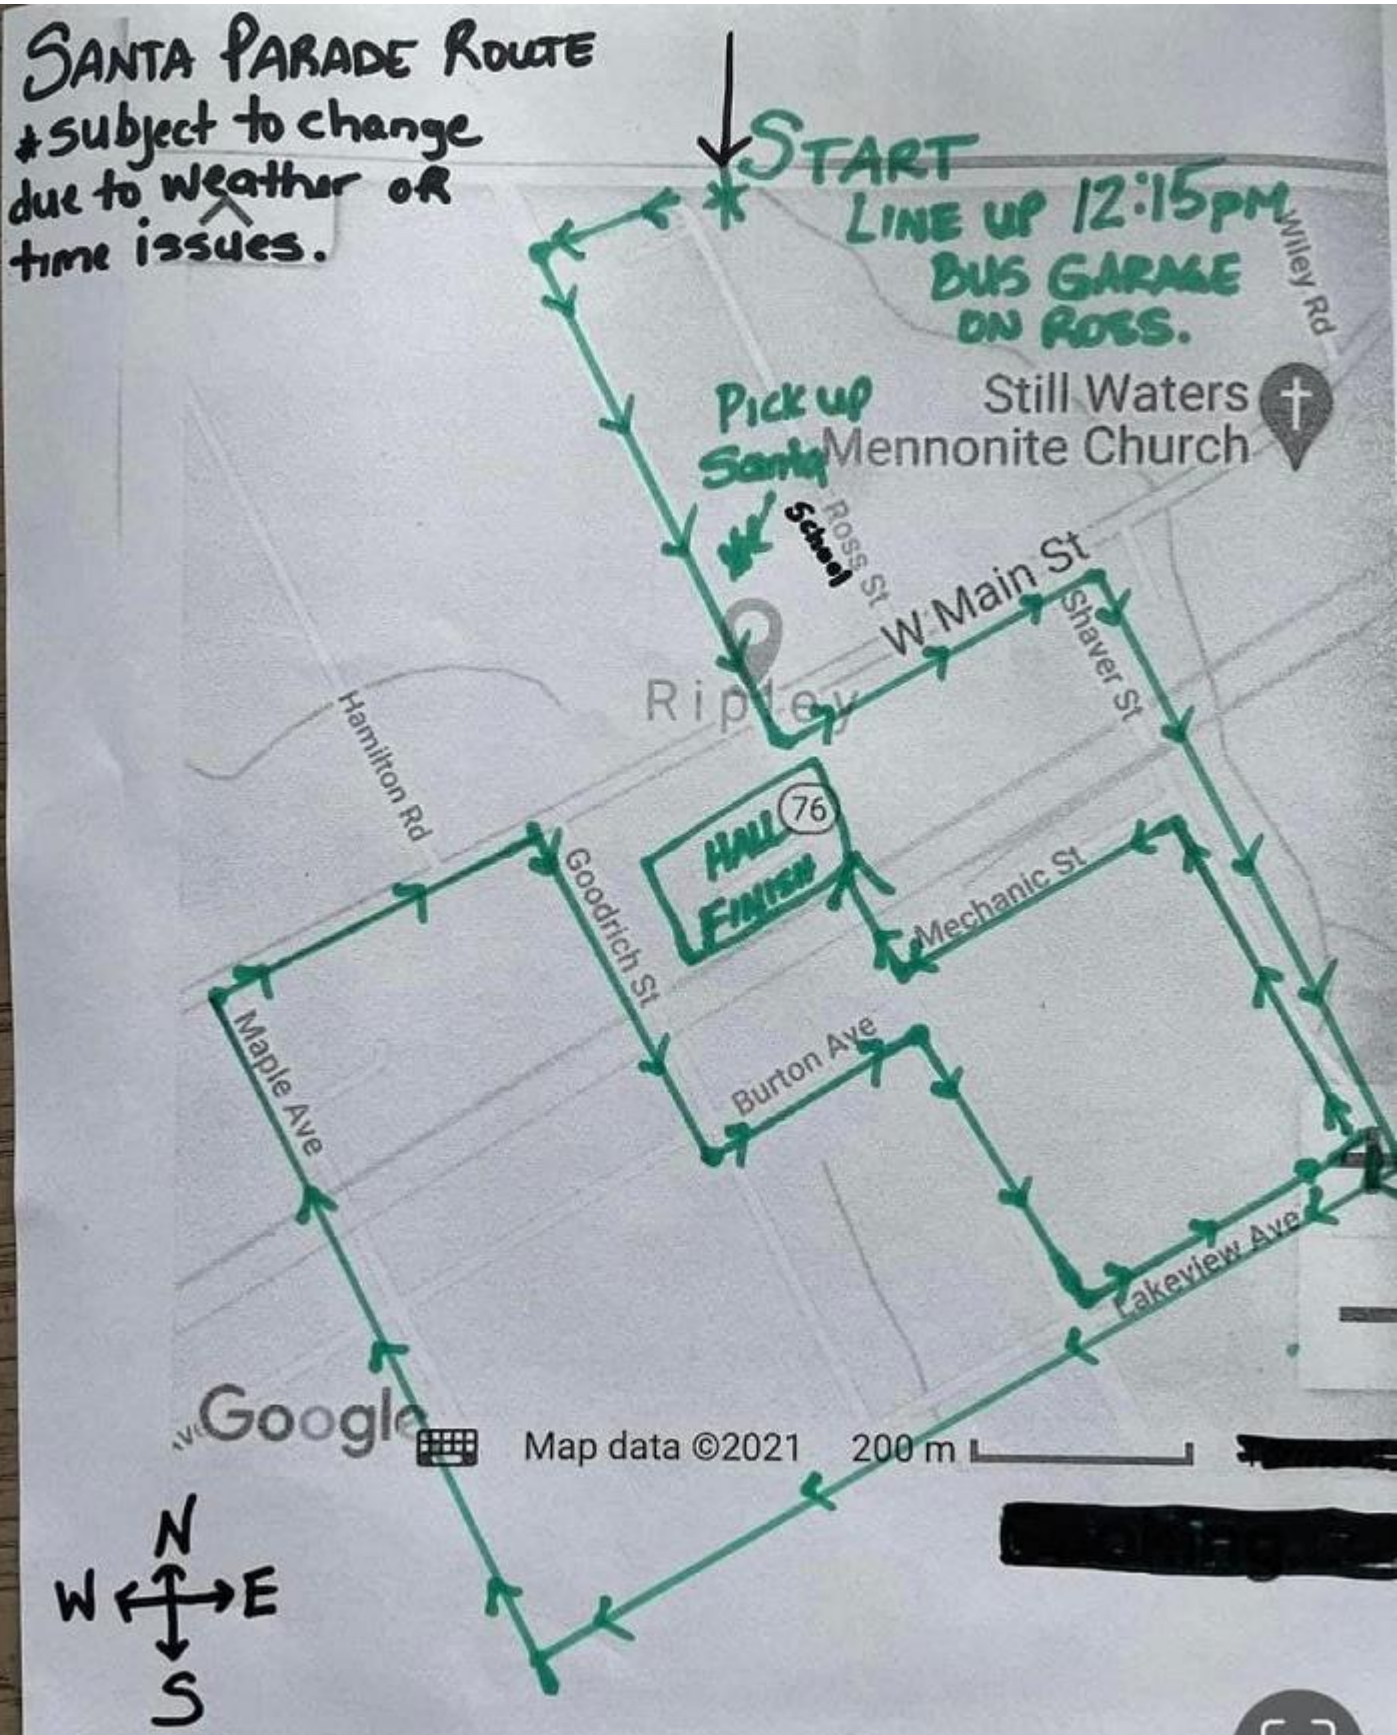 SANTA PARADE ROUTE
*subject to change
due to weather OR
time issues.
START
LINE UP 12:15pm
BUS GARAGE
ON ROSS.
Wiley Rd
Pick up
Santa
Still Waters
Mennonite Church
School
Ross St
W Main St
Shaver St
Ripley
Hamilton Rd
76
HALL
FINISH
Goodrich St
Mechanic St
Maple Ave
Burton Ave
Lakeview Ave
Google
Map data ©2021 200 m
N
W E
S